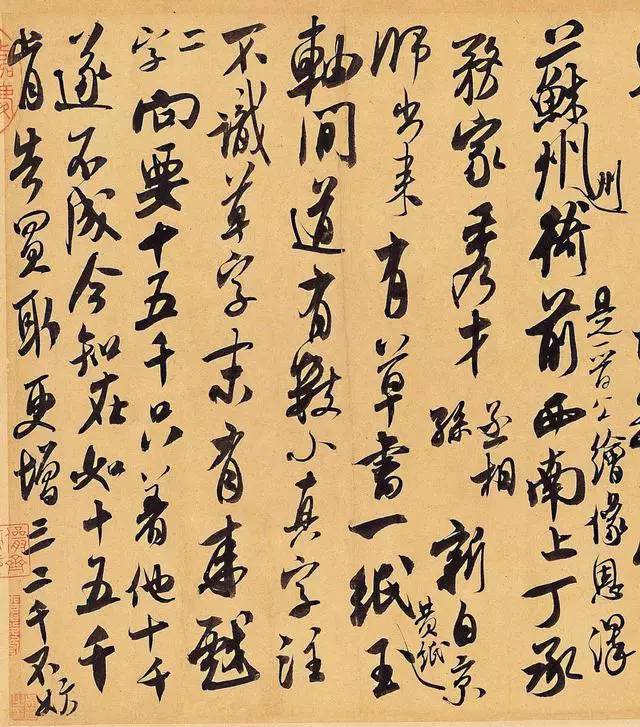 是晉公繪像恩澤
蘇州衙前西南上丁承
務家秀才丞相孫新自京
師出来有草書一紙黃紙玉
軸間道有數小真字注
不識草字末有来戲
二字向要十五千只著他十千
遂不成今知在如十五千
肯告買取更增三二千不妨